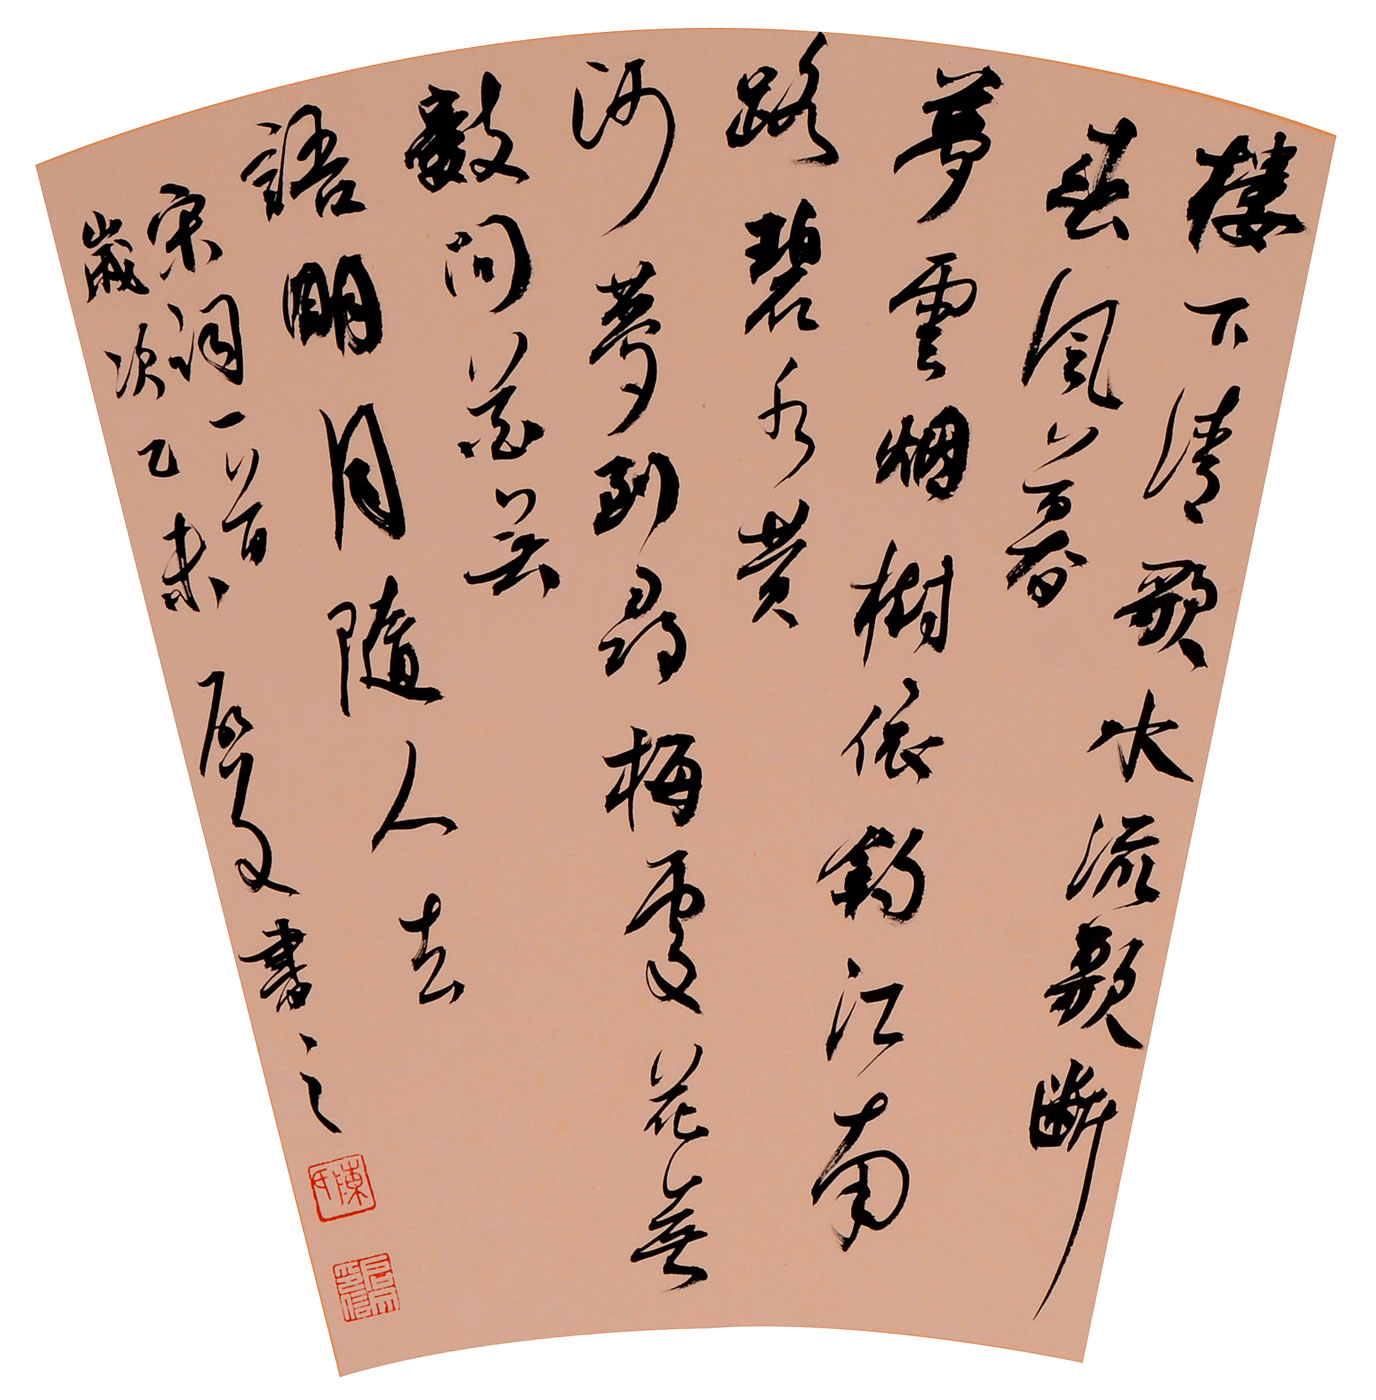 樓下清歌水流歌斷
春風暮
夢雲烟樹依約江南
路碧水黄
沙夢到尋梅處花無
數問花無
語明月隨人去
宋詞一首
歲次乙未 書之
陳氏